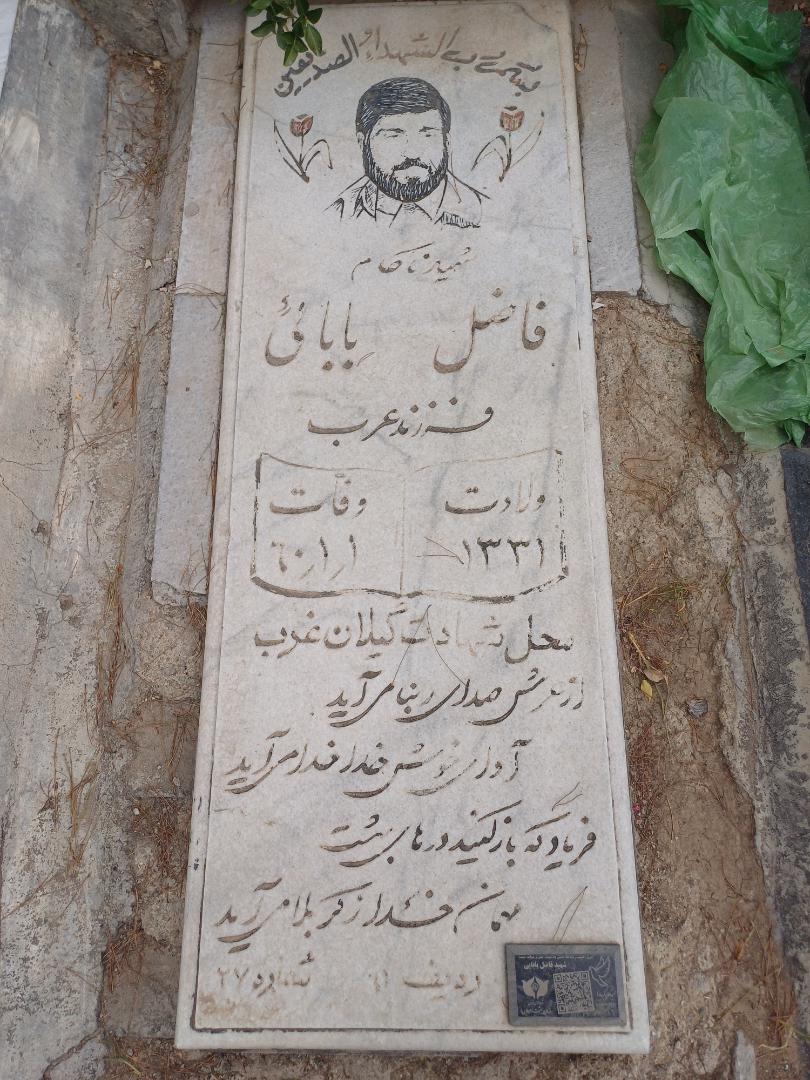 بسم رب الشهداء و الصدیقین
شهید ناکام
فاضل بابائی
فرزند عرب
ولادت وفات
۱۳۳۱ ۶۰ر۱ر۱
محل شهادت گیلان غرب
از عرش صدای ربنا می آید
آوای خوش خدا خدا می آید
فریاد که باز کنید درهای بهشت
مهمان خدا از کربلا می آید
ردیف شماره ۲۷
شهید فاضل بابایی